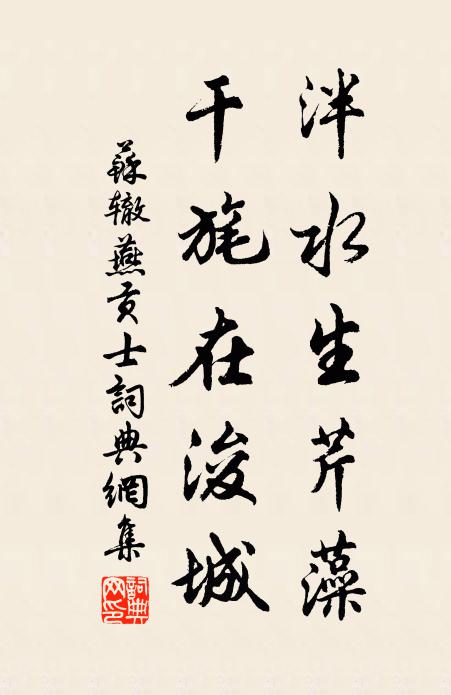 泮水生芹藻
干旄在浚城
蘇辙燕贡士詞典網集
詞典网印